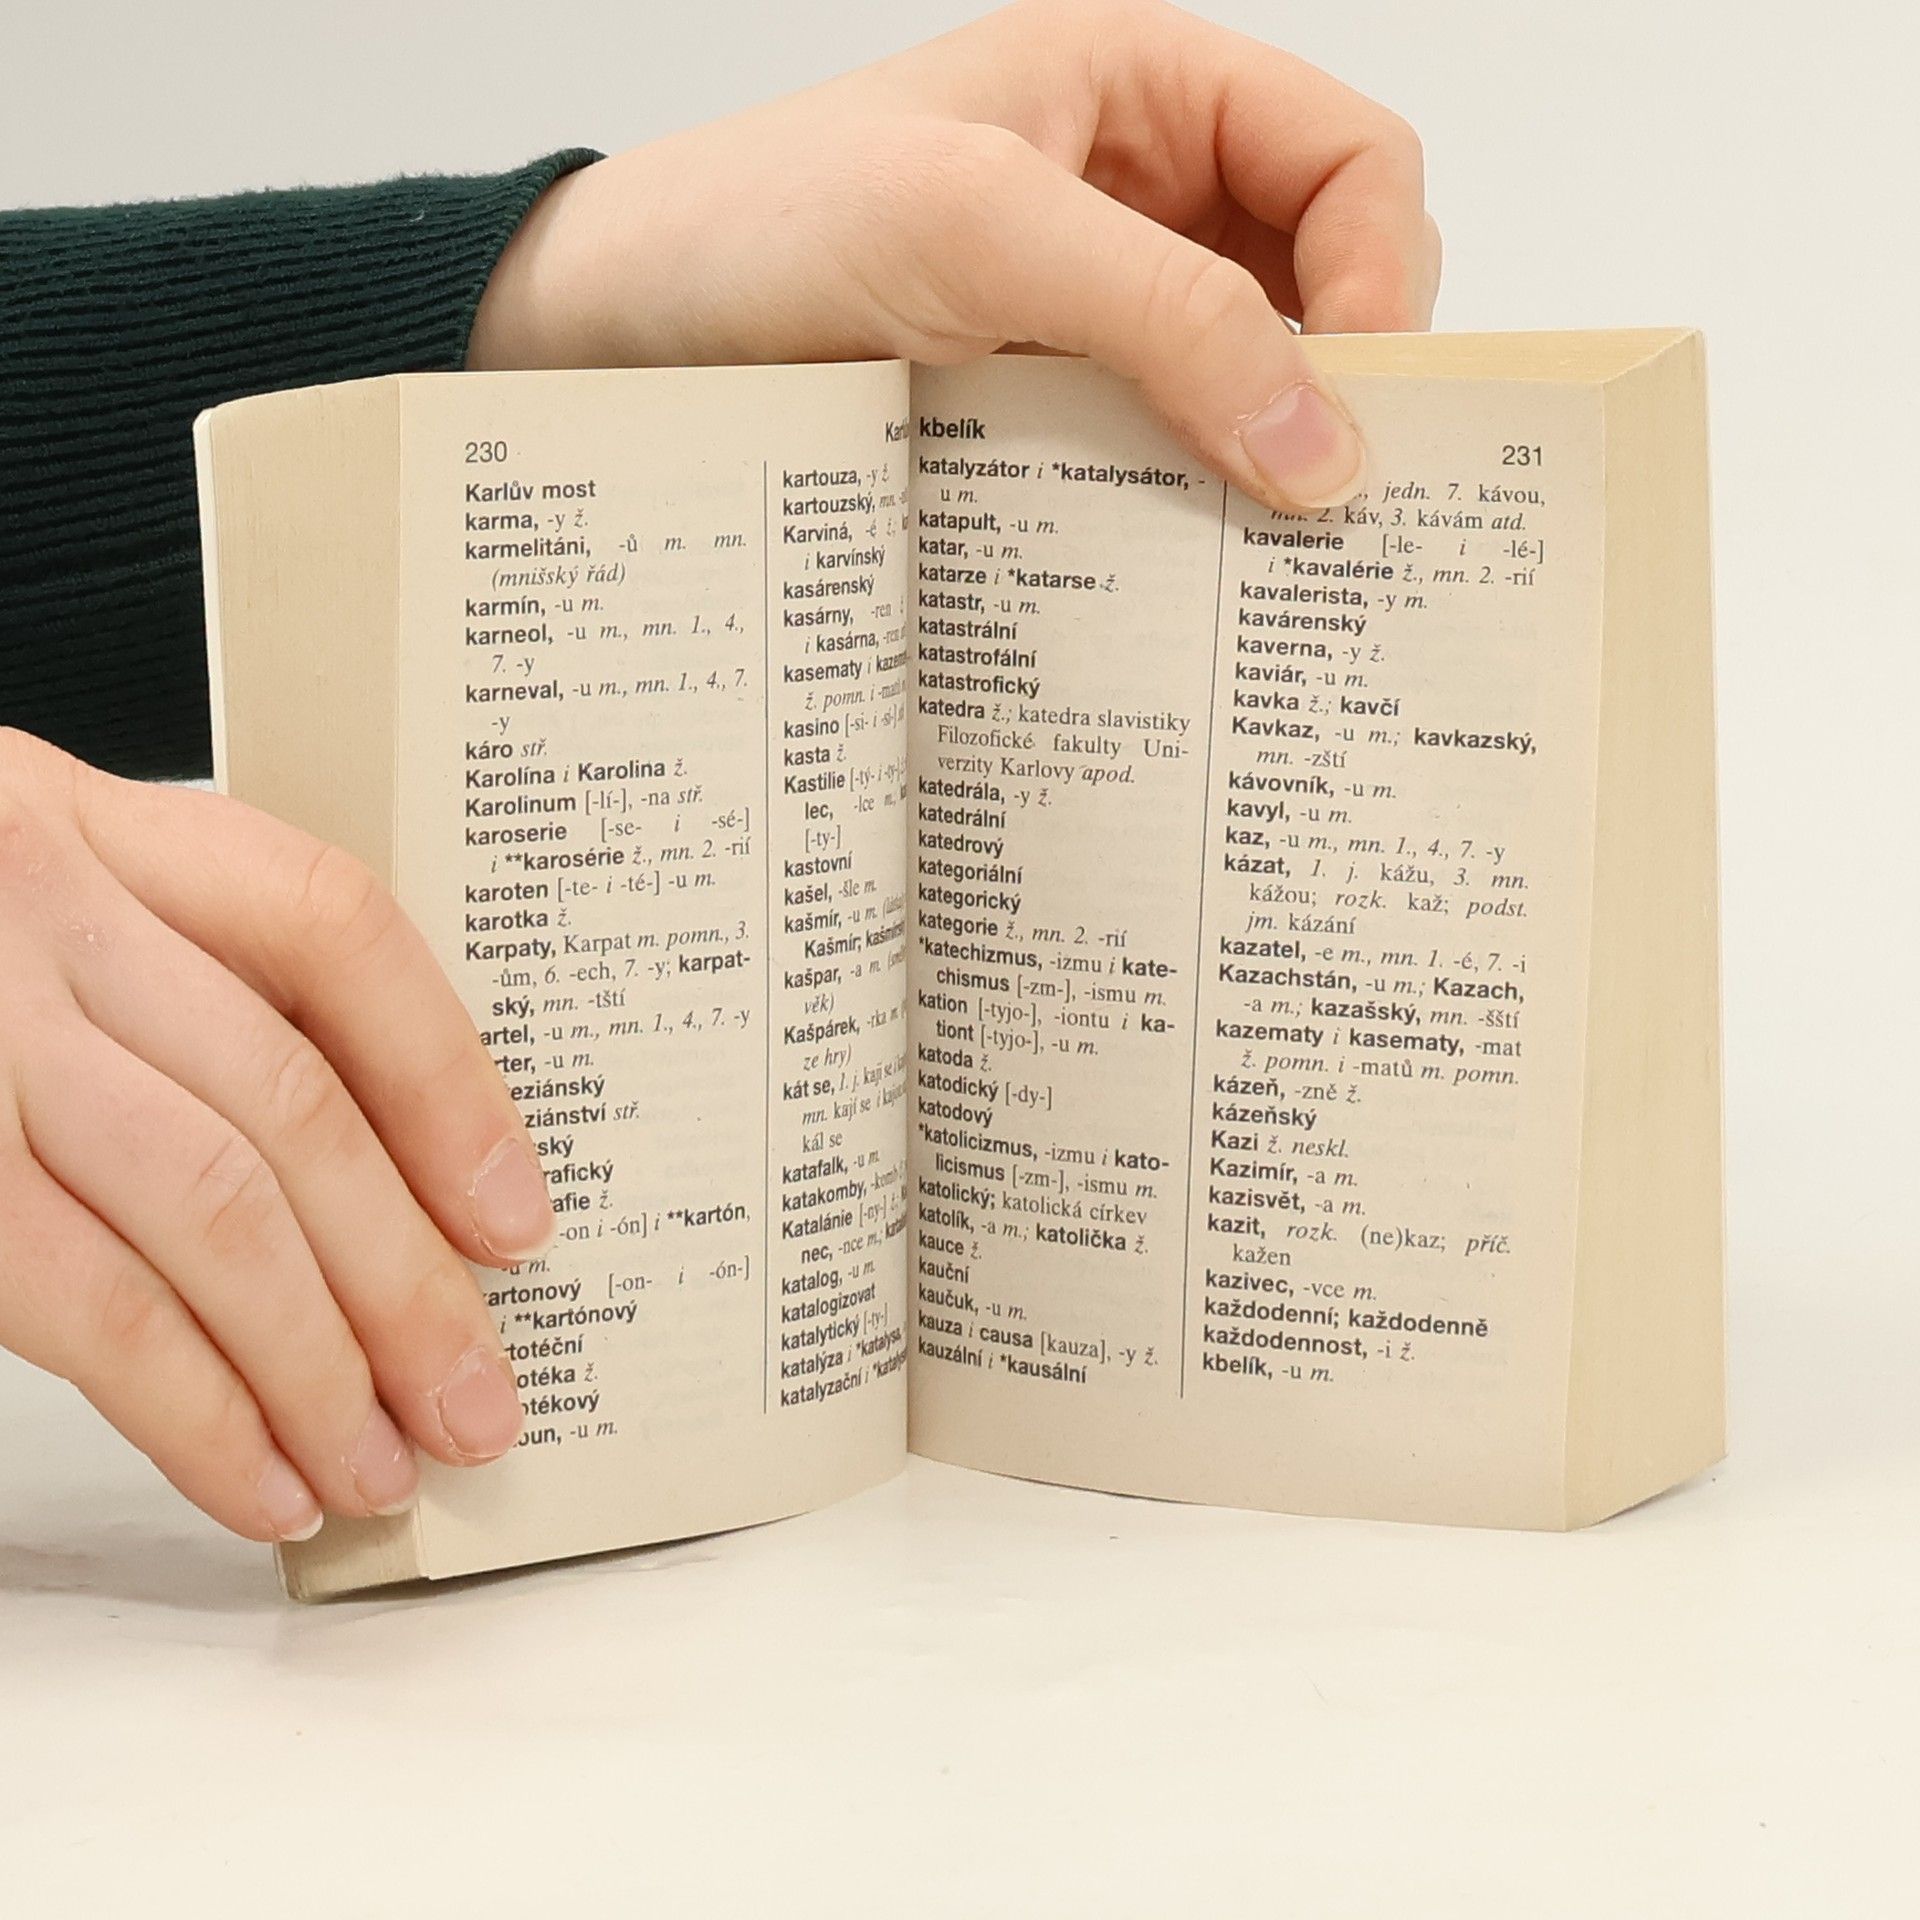 230
Karlův most
karma, -y ž.
karmelitáni, -ů m. mn.
(mnišský řád)
karmín, -u m.
karneol, -u m., mn. 1., 4.,
7. -y
karneval, -u m., mn. 1., 4., 7.
-y
káro stř.
Karolína i Karolina ž.
Karolinum [-lí-], -na stř.
karoserie [-se- i -sé-]
i **karosérie ž., mn. 2. -rií
karoten [-te- i -té-] -u m.
karotka ž.
Karpaty, Karpat m. pomn., 3.
-ům, 6. -ech, 7. -y; karpat-
ský, mn. -tští
artel, -u m., mn. 1., 4., 7. -y
rter, -u m.
eziánský
ziánství stř.
ský
rafický
afie ž.
-on i -ón] i **kartón,
-u m.
artonový [-on- i -ón-]
i **kartónový
totéční
otéka ž.
otékový
oun, -u m.
kartouza, -y ž.
kartouzský, mn.
Karviná, -é ž.,
i karvínský
kasárenský
kasárny, -ren
i kasárna, -ren
kasematy i
ž. pomn. i
kasino [-si- i -sí-]
kasta ž.
Kastilie [-tý- i -ty-]
lec, -lce m.,
[-ty-]
kastovní
kašel, -šle m.
kašmír, -u m.
Kašmír;
kašpar, -a m.
věk)
Kašpárek, -rka m.
ze hry)
kát se, 1. j. kaji se i
mn. kají se i
kál se
katafalk, -u m.
katakomby,
Katalánie [-ny-] ž.;
nec, -nce m.;
katalog, -u m.
katalogizovat
katalytický [-ty-]
katalýza i *katalysa,
katalyzační i
kbelík
231
katalyzátor i *katalysátor, -
u m.
katapult, -u m.
katar, -u m.
katarze i *katarse ž.
katastr, -u m.
katastrální
katastrofální
katastrofický
katedra ž.; katedra slavistiky
Filozofické fakulty Uni-
verzity Karlovy apod.
katedrála, -y ž.
katedrální
katedrový
kategoriální
kategorický
kategorie ž., mn. 2. -rií
*katechizmus, -izmu i kate-
chismus [-zm-], -ismu m.
kation [-tyjo-], -iontu i ka-
tiont [-tyjo-], -u m.
katoda ž.
katodický [-dy-]
katodový
*katolicizmus, -izmu i kato-
licismus [-zm-], -ismu m.
katolický; katolická církev
katolík, -a m.; katolička ž.
kauce ž.
kauční
kaučuk, -u m.
kauza i causa [kauza], -y ž.
kauzální i *kausální
jedn. 7. kávou,
mn. 2. káv, 3. kávám atd.
kavalerie [-le- i -lé-]
i *kavalérie ž., mn. 2. -rií
kavalerista, -y m.
kavárenský
kaverna, -y ž.
kaviár, -u m.
kavka ž.; kavčí
Kavkaz, -u m.; kavkazský,
mn. -zští
kávovník, -u m.
kavyl, -u m.
kaz, -u m., mn. 1., 4., 7. -y
kázat, 1. j. kážu, 3. mn.
kážou; rozk. kaž; podst.
jm. kázání
kazatel, -e m., mn. 1. -é, 7. -i
Kazachstán, -u m.; Kazach,
-a m.; kazašský, mn. -šští
kazematy i kasematy, -mat
ž. pomn. i -matů m. pomn.
kázeň, -zně ž.
kázeňský
Kazi ž. neskl.
Kazimír, -a m.
kazisvět, -a m.
kazit, rozk. (ne)kaz; příč.
kažen
kazivec, -vce m.
každodenní; každodenně
každodennost, -i ž.
kbelík, -u m.